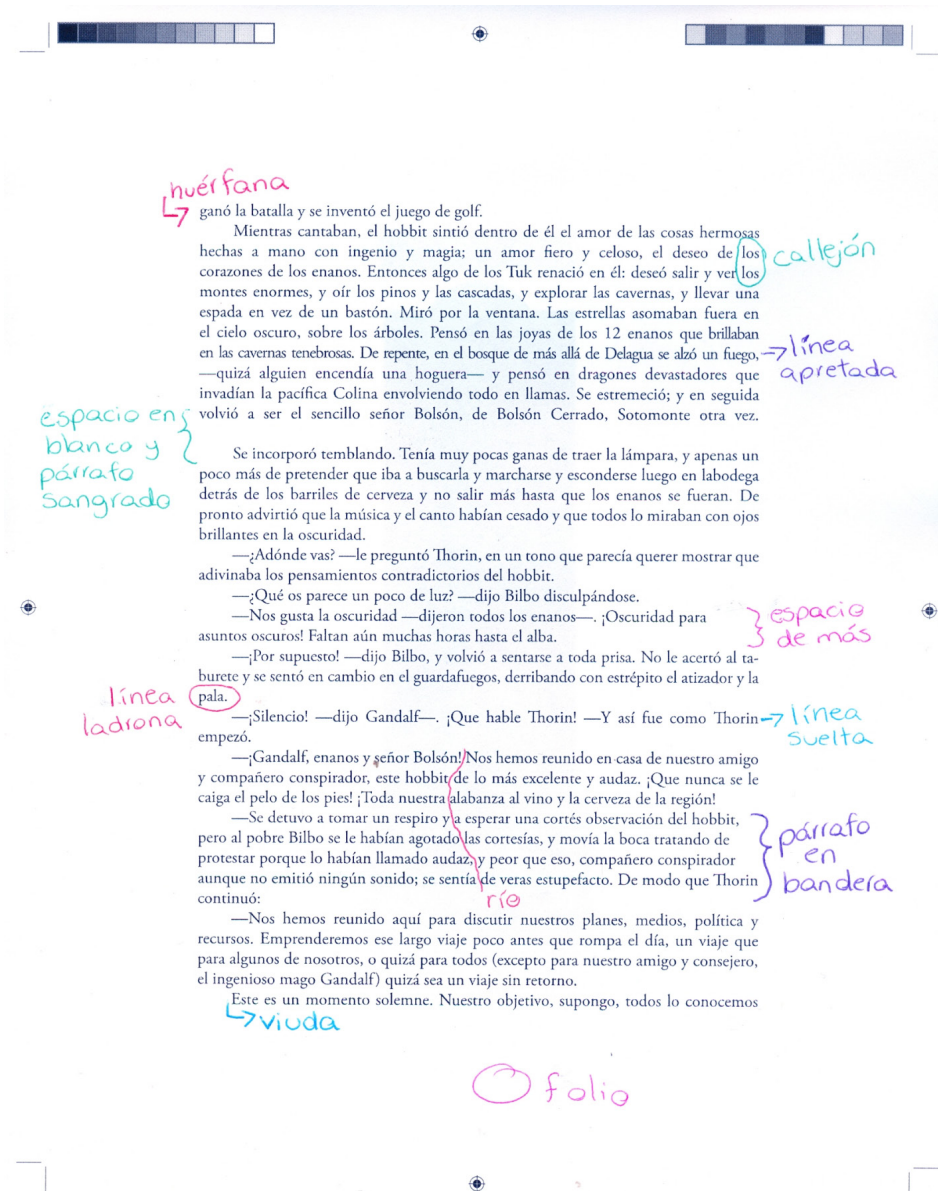 huérfana
ganó la batalla y se inventó el juego de golf.
Mientras cantaban, el hobbit sintió dentro de él el amor de las cosas hermosas
hechas a mano con ingenio y magia; un amor fiero y celoso, el deseo de los
callejón
corazones de los enanos. Entonces algo de los Tuk renació en él: deseó salir y ver los
montes enormes, y oír los pinos y las cascadas, y explorar las cavernas, y llevar una
espada en vez de un bastón. Miró por la ventana. Las estrellas asomaban fuera en
el cielo oscuro, sobre los árboles. Pensó en las joyas de los 12 enanos que brillaban
en las cavernas tenebrosas. De repente, en el bosque de más allá de Delagua se alzó un fuego,
línea
apretada
—quizá alguien encendía una hoguera— y pensó en dragones devastadores que
invadían la pacífica Colina envolviendo todo en llamas. Se estremeció; y en seguida
volvió a ser el sencillo señor Bolsón, de Bolsón Cerrado, Sotomonte otra vez.
espacio en
blanco y
párrafo
sangrado
Se incorporó temblando. Tenía muy pocas ganas de traer la lámpara, y apenas un
poco más de pretender que iba a buscarla y marcharse y esconderse luego en labodega
detrás de los barriles de cerveza y no salir más hasta que los enanos se fueran. De
pronto advirtió que la música y el canto habían cesado y que todos lo miraban con ojos
brillantes en la oscuridad.
—¿Adónde vas? —le preguntó Thorin, en un tono que parecía querer mostrar que
adivinaba los pensamientos contradictorios del hobbit.
—¿Qué os parece un poco de luz? —dijo Bilbo disculpándose.
—Nos gusta la oscuridad —dijeron todos los enanos—. ¡Oscuridad para
asuntos oscuros! Faltan aún muchas horas hasta el alba.
espacio
de más
—¡Por supuesto! —dijo Bilbo, y volvió a sentarse a toda prisa. No le acertó al ta-
burete y se sentó en cambio en el guardafuegos, derribando con estrépito el atizador y la
pala.
línea
ladrona
—¡Silencio! —dijo Gandalf—. ¡Que hable Thorin! —Y así fue como Thorin
empezó.
línea
suelta
—¡Gandalf, enanos y señor Bolsón! Nos hemos reunido en casa de nuestro amigo
y compañero conspirador, este hobbit de lo más excelente y audaz. ¡Que nunca se le
caiga el pelo de los pies! ¡Toda nuestra alabanza al vino y la cerveza de la región!
—Se detuvo a tomar un respiro y a esperar una cortés observación del hobbit,
pero al pobre Bilbo se le habían agotado las cortesías, y movía la boca tratando de
protestar porque lo habían llamado audaz, y peor que eso, compañero conspirador
aunque no emitió ningún sonido; se sentía de veras estupefacto. De modo que Thorin
continuó:
párrafo
en
bandera
río
—Nos hemos reunido aquí para discutir nuestros planes, medios, política y
recursos. Emprenderemos ese largo viaje poco antes que rompa el día, un viaje que
para algunos de nosotros, o quizá para todos (excepto para nuestro amigo y consejero,
el ingenioso mago Gandalf) quizá sea un viaje sin retorno.
Este es un momento solemne. Nuestro objetivo, supongo, todos lo conocemos
viuda
folio